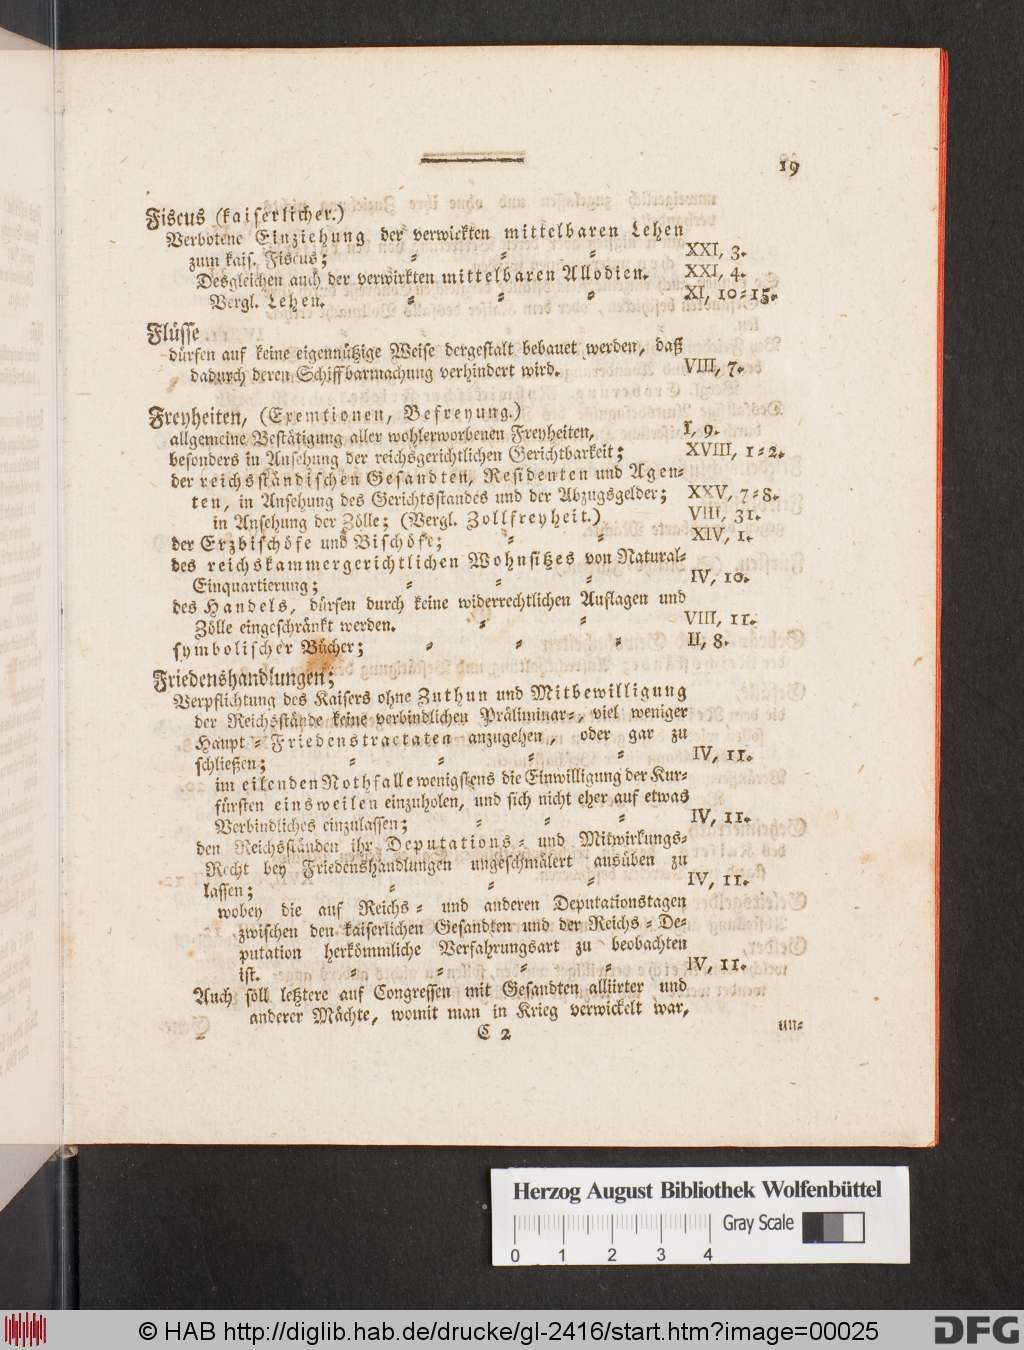 19
Fiscus (kaiserlicher.)
Verbotene Einziehung der verwirkten mittelbaren Lehen
zum kais. Fiscus; = = = XXI, 3.
Desgleichen auch der verwirkten mittelbaren Allodien. XXI, 4.
Vergl. Lehen. = = = XI, 10=15.
Flüsse
dürfen auf keine eigennützige Weise dergestalt bebauet werden, daß
dadurch deren Schiffbarmachung verhindert wird. VIII, 7.
Freyheiten, (Exemtionen, Befreyung.)
allgemeine Bestätigung aller wohlerworbenen Freyheiten, I, 9.
besonders in Ansehung der reichsgerichtlichen Gerichtbarkeit; XVIII, 1=2.
der reichsständischen Gesandten, Residenten und Agen=
ten, in Ansehung des Gerichtsstandes und der Abzugsgelder; XXV, 7=8.
in Ansehung der Zölle; (Vergl. Zollfreyheit.) VIII, 31.
der Erzbischöfe und Bischöfe; = = XIV, 1.
des reichskammergerichtlichen Wohnsitzes von Natural=
Einquartierung; = = = IV, 10.
des Handels, dürfen durch keine widerrechtlichen Auflagen und
Zölle eingeschränkt werden. = = VIII, 11.
symbolischer Bücher; = = = II, 8.
Friedenshandlungen;
Verpflichtung des Kaisers ohne Zuthun und Mitbewilligung
der Reichsstände keine verbindlichen Präliminar=, viel weniger
Haupt = Friedenstractaten anzugehen, oder gar zu
schließen; = = = = IV, 11.
im eilenden Nothfalle wenigstens die Einwilligung der Kur=
fürsten einsweilen einzuholen, und sich nicht eher auf etwas
Verbindliches einzulassen; = = = IV, 11.
den Reichsständen ihr Deputations = und Mitwirkungs=
Recht bey Friedenshandlungen ungeschmälert ausüben zu
lassen; = = = IV, 11.
wobey die auf Reichs = und anderen Deputationstagen
zwischen den kaiserlichen Gesandten und der Reichs = De=
putation herkömmliche Verfahrungsart zu beobachten
ist. = = = = IV, 11.
Auch soll letztere auf Congressen mit Gesandten alliirter und
anderer Mächte, womit man in Krieg verwickelt war,
C 2 un=
Herzog August Bibliothek Wolfenbüttel
Gray Scale
0 1 2 3 4
© HAB http://diglib.hab.de/drucke/gl-2416/start.htm?image=00025
DFG